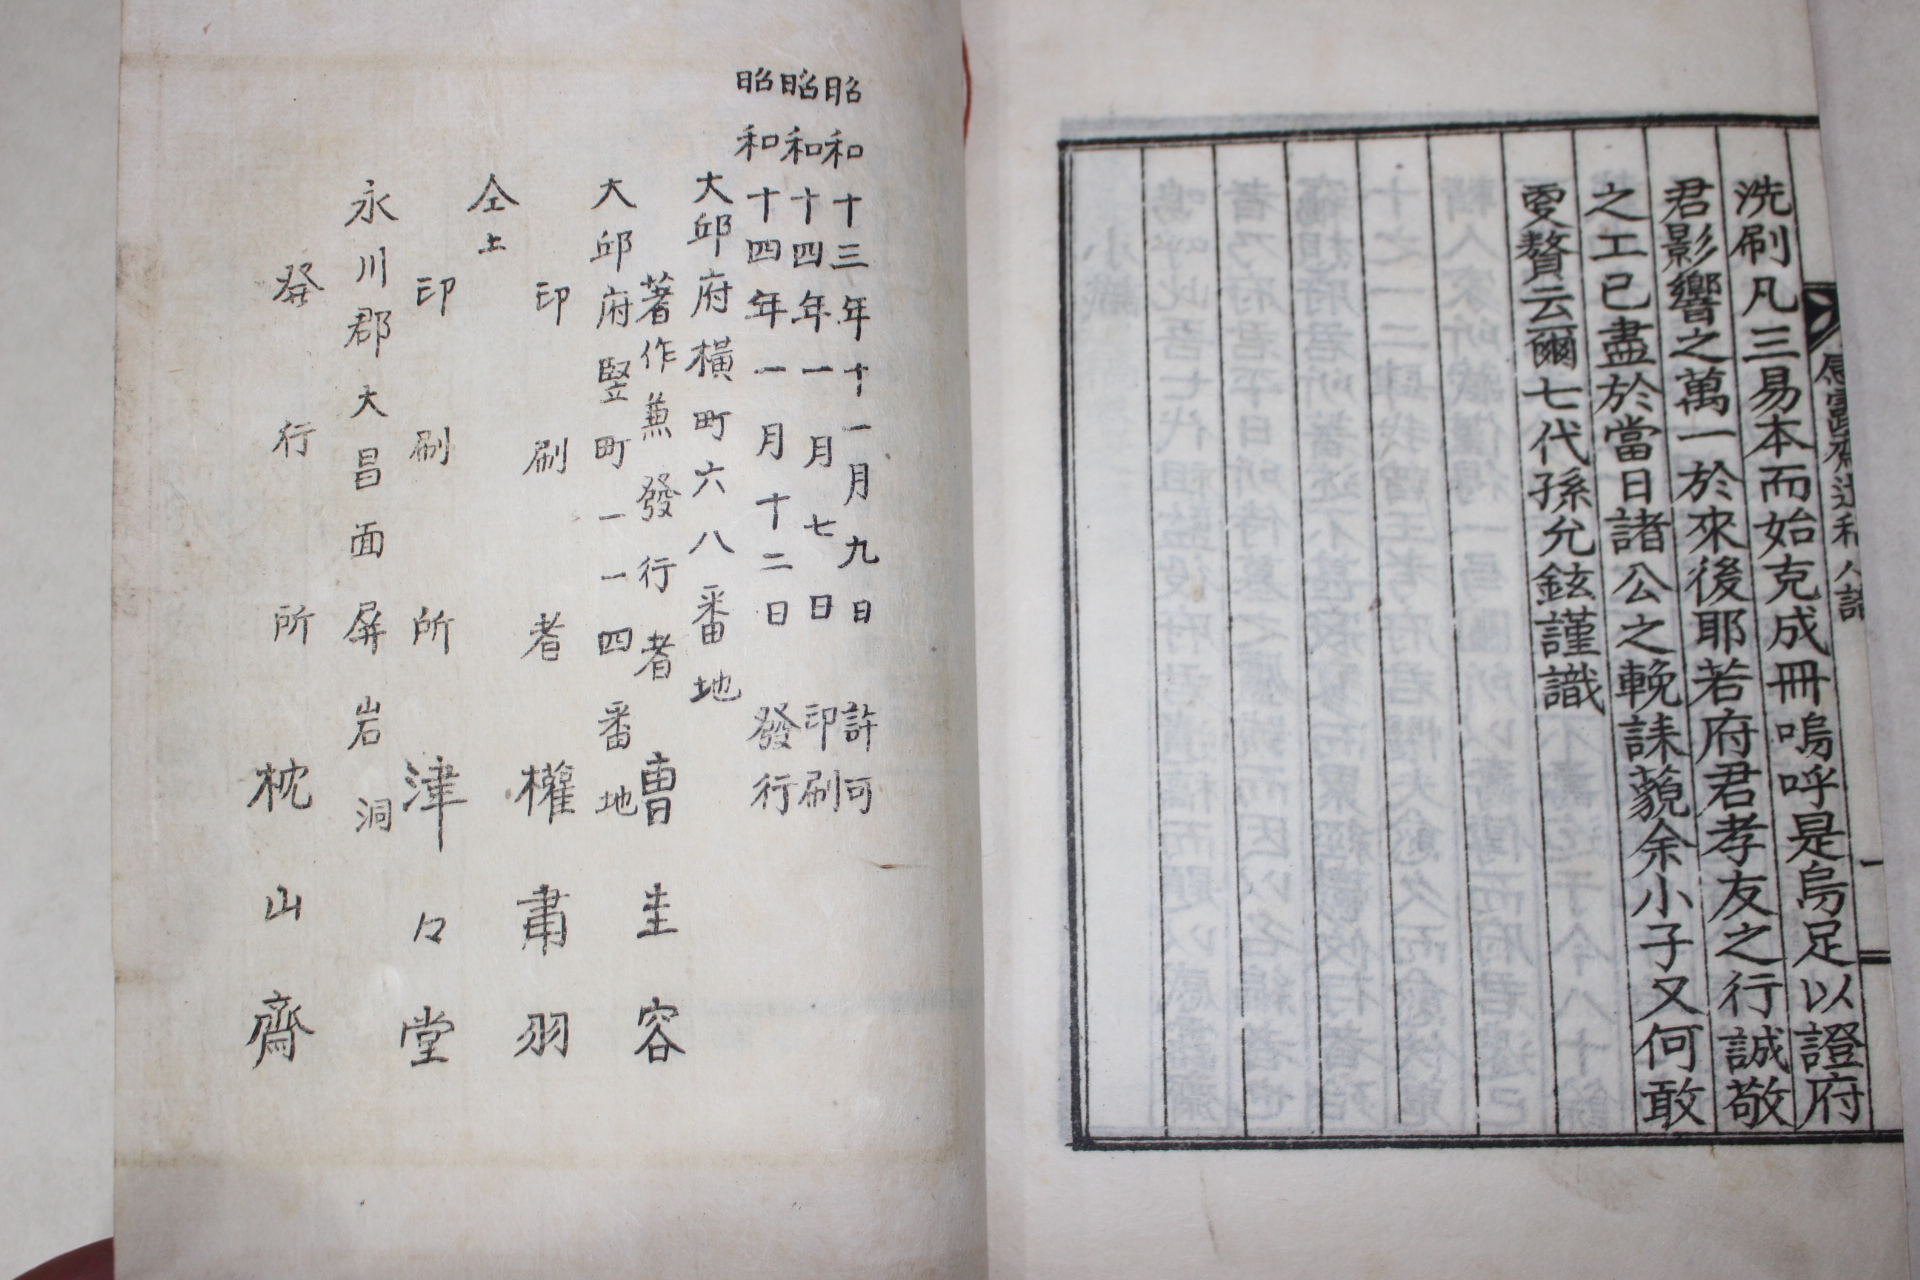 洗刷凡三易本而始克成冊嗚呼是烏足以證府
君影響之萬一於來後耶若府君孝友之行誠敬
之工已盡於當日諸公之輓誄藐余小子又何敢
更贅云爾七代孫允鉉謹識
昭和十三年十一月九日許可
昭和十四年一月七日印刷
昭和十四年一月十二日發行
大邱府橫町六八番地
著作兼發行者 曺圭容
大邱府竪町一一四番地
印刷者 權肅羽
仝上
印刷所 津々堂
永川郡大昌面屛岩洞
發行所 枕山齋